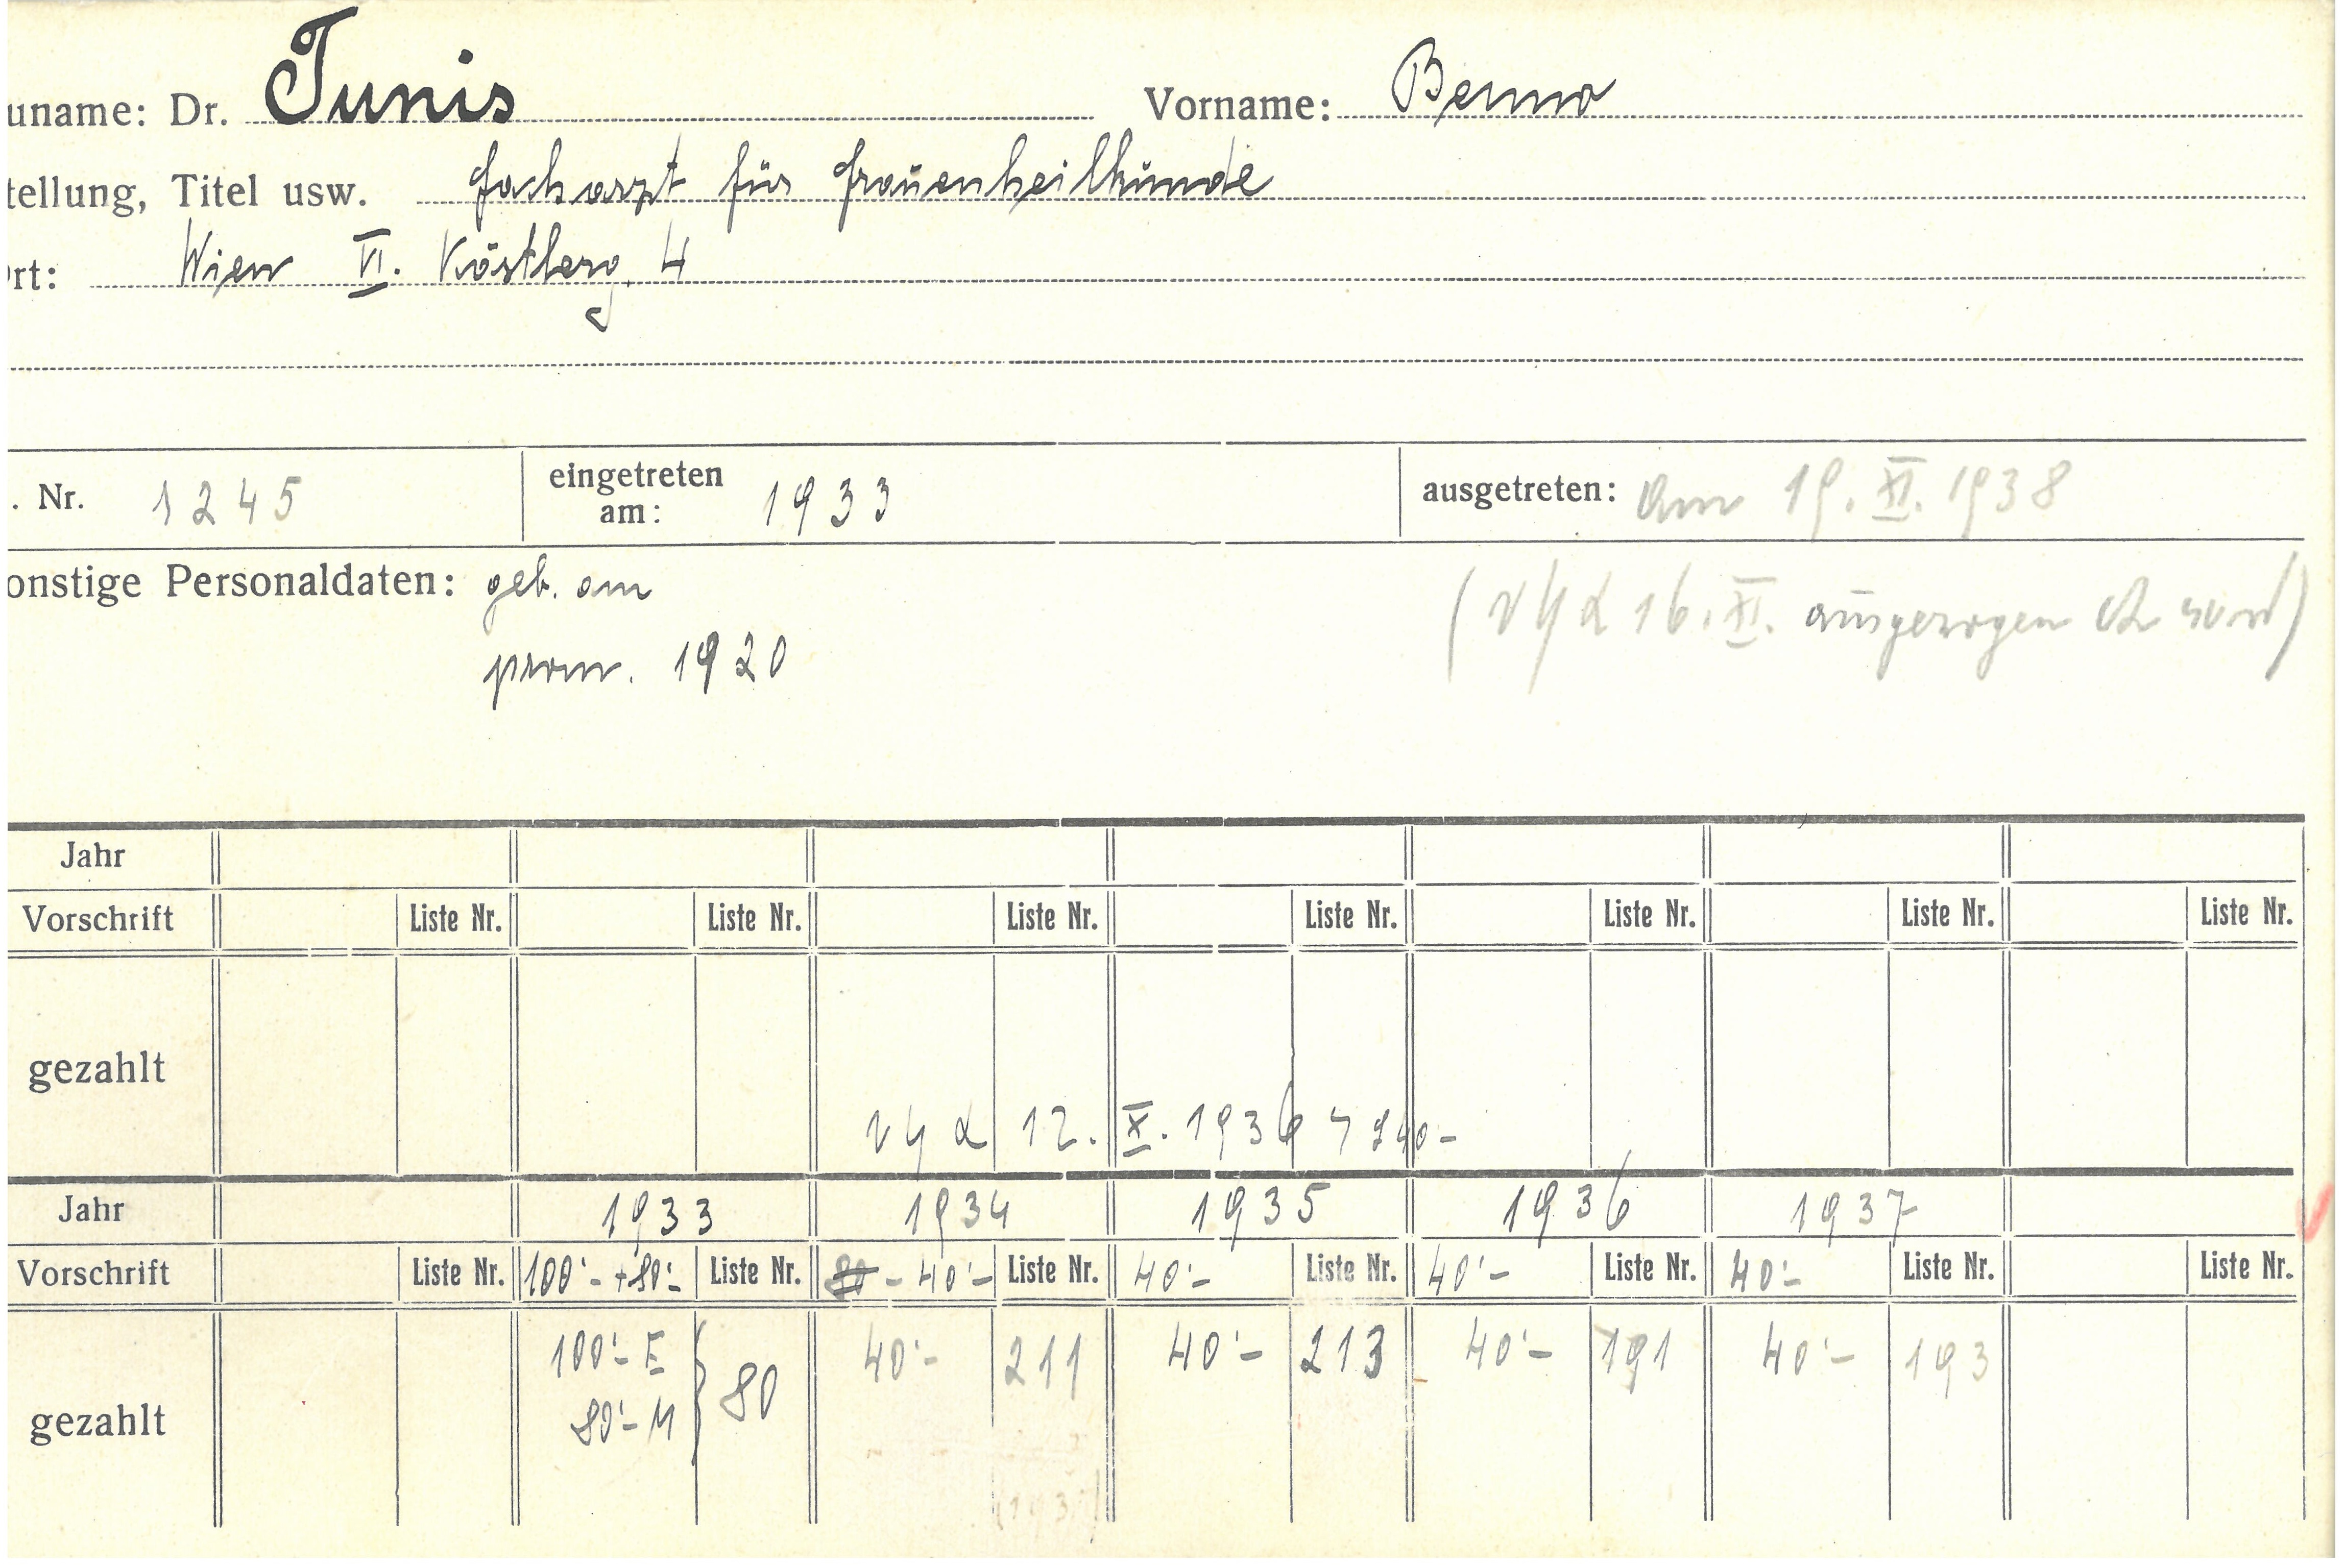 uname: Dr. Tunis Vorname: Benno
tellung, Titel usw. Facharzt für Frauenheilkunde
Ort: Wien VI. Köstlerg. 4
. Nr. 1245 eingetreten am: 1933 ausgetreten: am 19. XI. 1938
onstige Personaldaten: geb. am
( 16. XI. ausgezogen )
prom. 1920
Jahr
Vorschrift Liste Nr. Liste Nr. Liste Nr. Liste Nr. Liste Nr. Liste Nr. Liste Nr.
gezahlt
12. X. 1936
Jahr 1933 1934 1935 1936 1937
Vorschrift Liste Nr. 100'- + 80'- Liste Nr. 80 - 40'- Liste Nr. 40'- Liste Nr. 40'- Liste Nr. 40'- Liste Nr. Liste Nr.
gezahlt 100'- E 80 40'- 211 40'- 213 40'- 191 40'- 193
80'- M